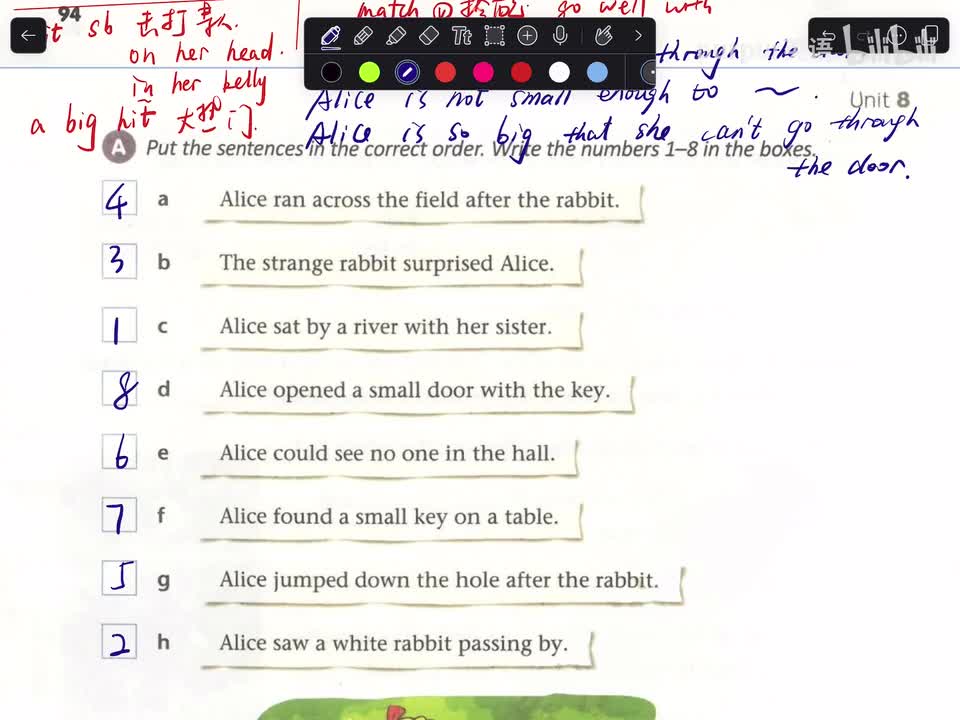 94
match go well with
sb 击打某人.
on her head.
in her belly
a big hit 大热门.
Tt
through the
Alice is not small enough to ~ .
Alice is so big that she can't go through
the door.
bilibili
Unit 8
A Put the sentences in the correct order. Write the numbers 1–8 in the boxes.
4 a Alice ran across the field after the rabbit.
3 b The strange rabbit surprised Alice.
1 c Alice sat by a river with her sister.
8 d Alice opened a small door with the key.
6 e Alice could see no one in the hall.
7 f Alice found a small key on a table.
5 g Alice jumped down the hole after the rabbit.
2 h Alice saw a white rabbit passing by.